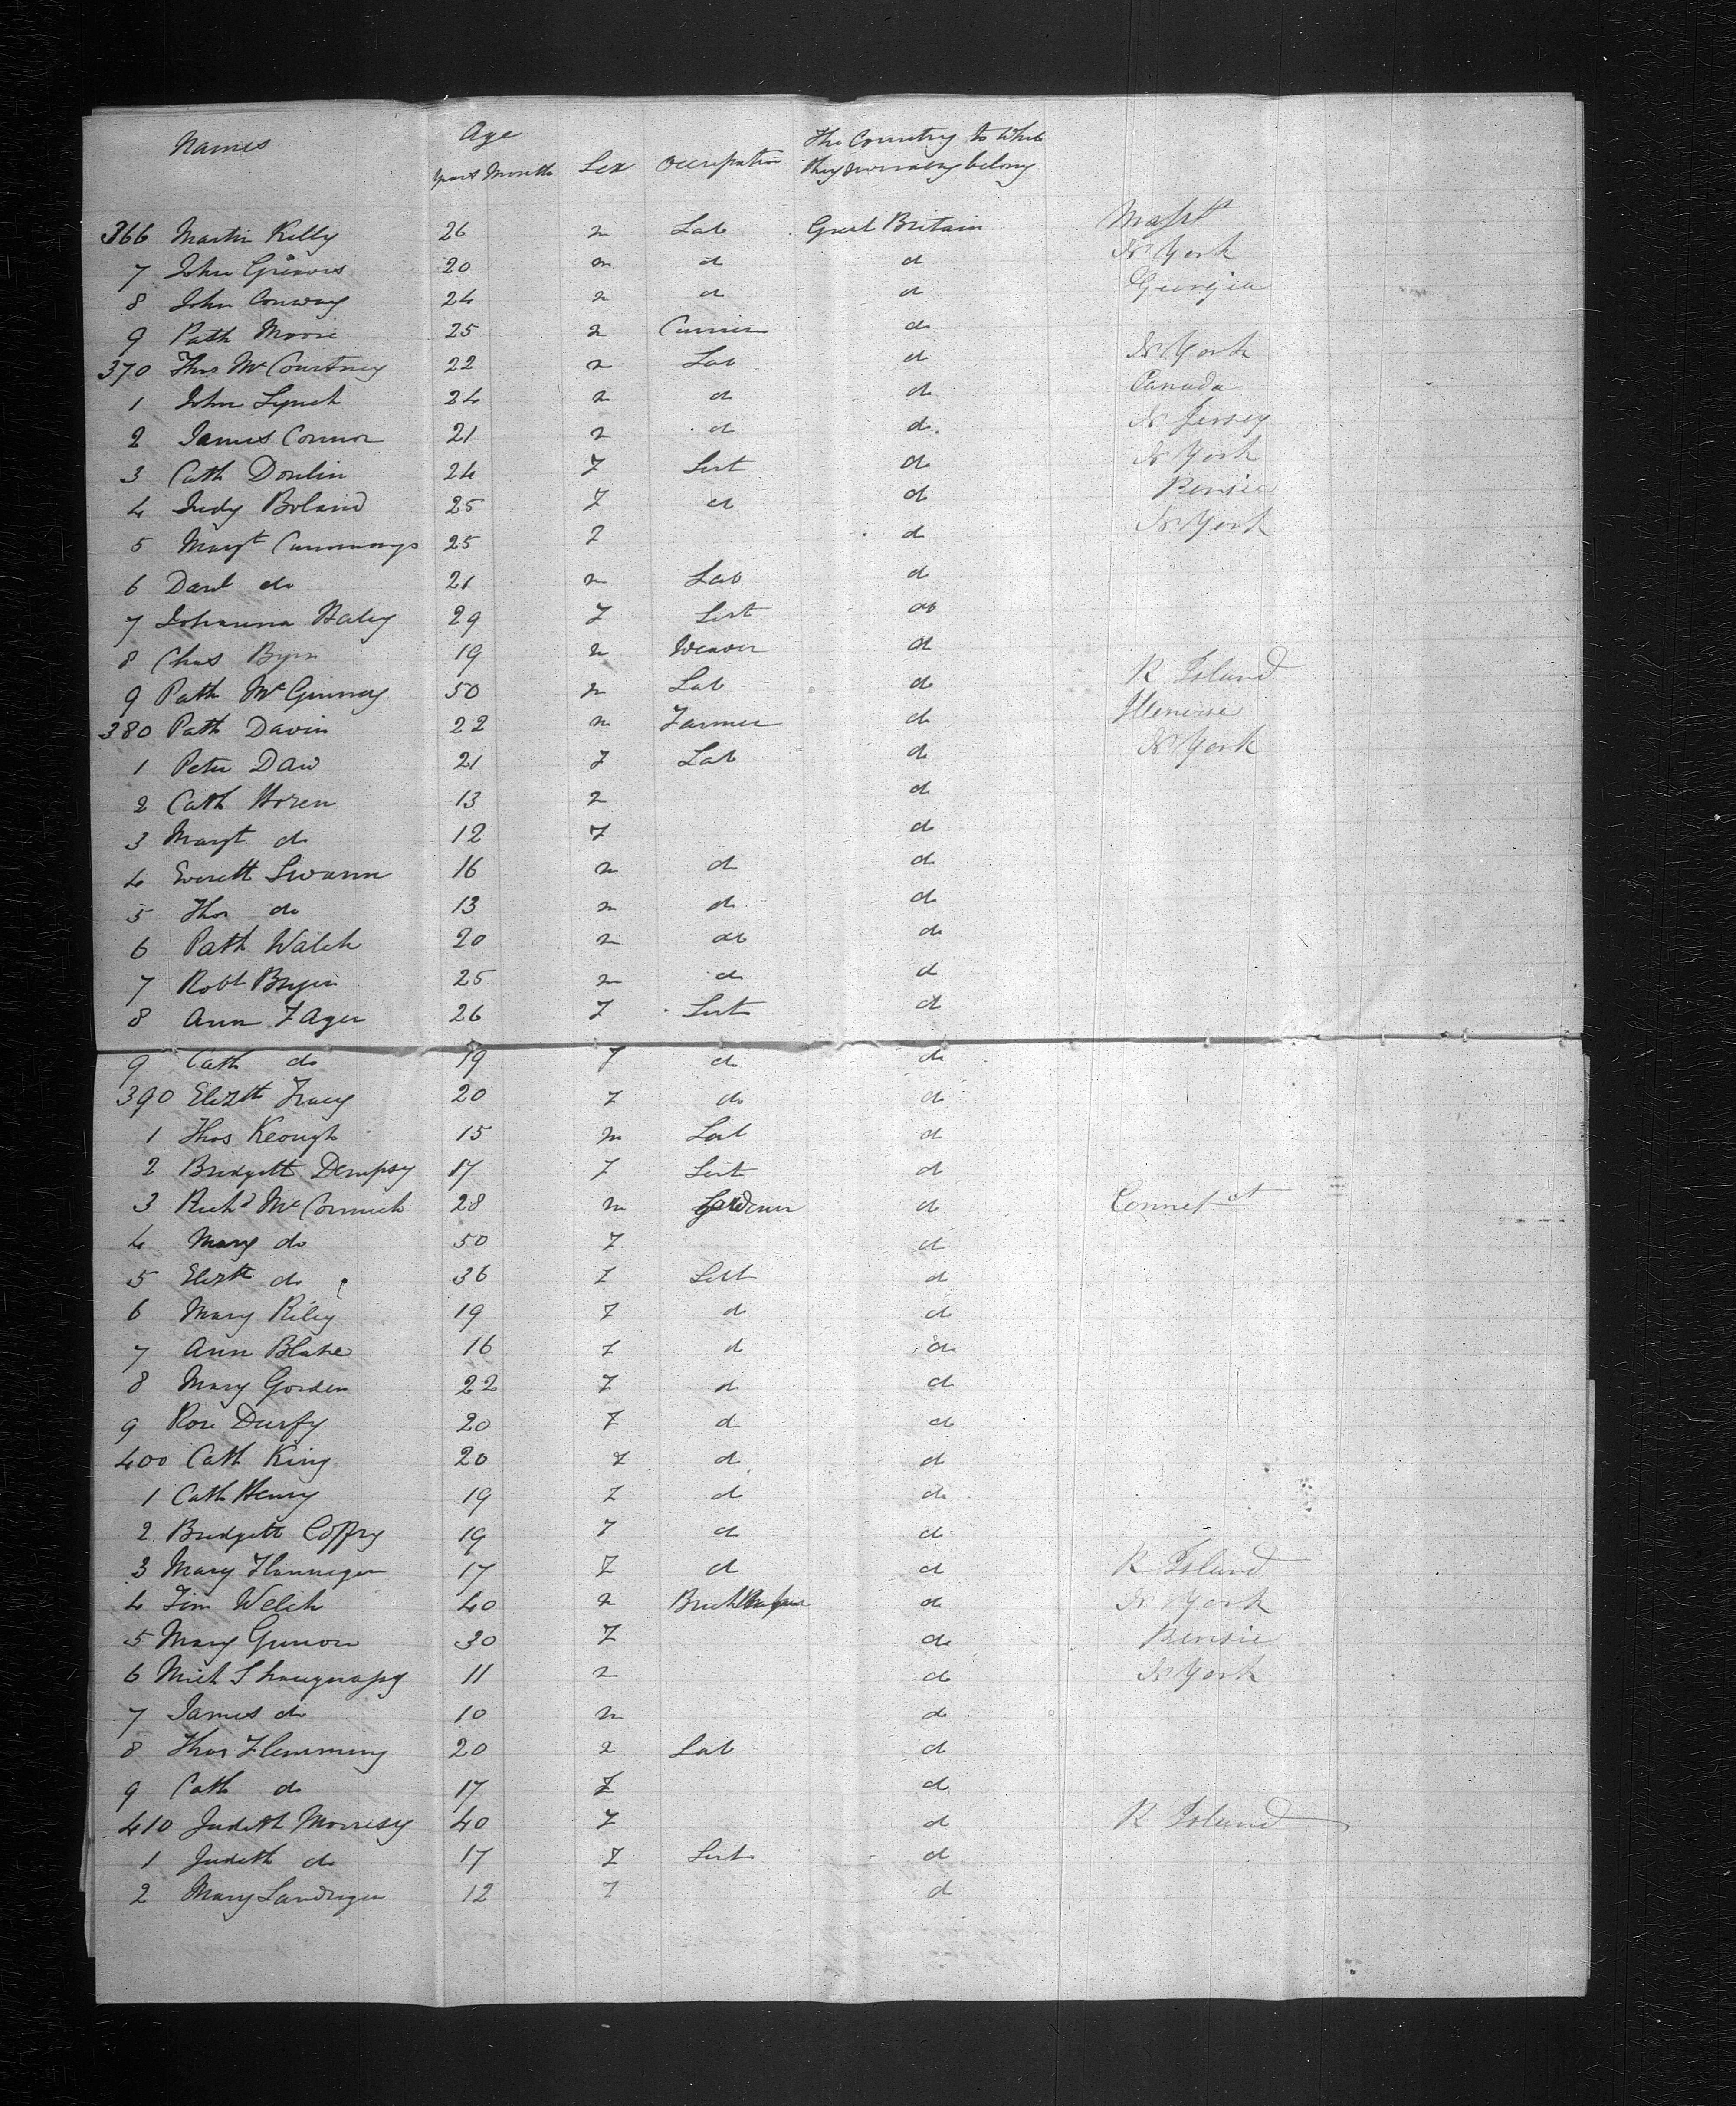 Names Age years Months Sex Occupation The Country to which they severally belong
366 Martin Kelly 26 m Lab Great Britain Masstts
7 John Grieves 20 m d d N York
8 John Conway 24 m d d Georgia
9 Patk Moore 25 m Currier do
370 Thos McCourtney 22 m Lab d N York
1 John Lynch 24 m d d Canada
2 James Connor 21 m d d. N Jersey
3 Cath Donlin 24 F Sert d N York
4 Judy Boland 25 F d d
5 Margt Cummings 25 F d N York
6 Danl do 21 m Lab d
7 Johanna Haley 29 F Sert do
8 Chas Byrn 19 m Weaver d
9 Patk McGinney 50 m Lab d R Island
380 Patk Davin 22 m Farmer d
1 Peter Daw 21 F Lab d N York
2 Cath Horen 13 m d
3 Margt do 12 F d
4 Everett Swann 16 m d d
5 Thos do 13 m d d
6 Patk Walsh 20 m do d
7 Robt Bryen 25 m d d
8 Ann Fager 26 F Sert d
9 Cath do 19 F d do
390 Elizth Tracy 20 F do d
1 Thos Keough 15 m Lab d
2 Bridgett Dempsy 17 F Sert d
3 Richd McCormick 28 m Gardener d Connect
4 Mary do 50 F d
5 Elizth do 36 F Sert d
6 Mary Riley 19 F d d
7 Ann Blake 16 F d d
8 Mary Gorden 22 F d d
9 Rose Durfy 20 F d d
400 Cath King 20 F d d
1 Cath Henry 19 F d d
2 Bridgett Coffry 19 F d d
3 Mary Flannegan 17 F d d R Island
4 Tim Welch 40 m d N York
5 Mary 30 F d
6 Mich Shaugnassy 11 m d N York
7 James do 10 m d
8 Thos Flemming 20 m Lab d
9 Cath do 17 F d
410 Judith Morrisy 40 F d R Island
1 Judith do 17 F Sert d
2 Mary Landrigen 12 F d